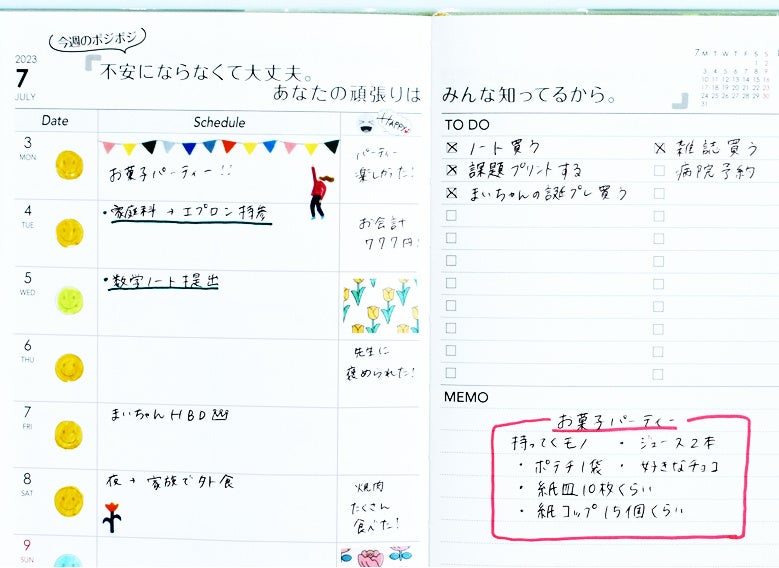 今週のポジポジ
2023
7
JULY
「不安にならなくて大丈夫。
あなたの頑張りは
Date Schedule HAPPY
3
MON
お菓子パーティー!!
パーティー
楽しかった!
4
TUE
・家庭科→エプロン持参
お会計
777円!
5
WED
・数学ノート提出
6
THU
先生に
褒められた!
7
FRI
まいちゃんHBD
8
SAT
夜→家族で外食
焼肉
たくさん
食べた!
9
SUN
7 M T W T F S S
1 2
3 4 5 6 7 8 9
10 11 12 13 14 15 16
17 18 19 20 21 22 23
24 25 26 27 28 29 30
31
みんな知ってるから。」
TO DO
ノート買う
雑誌買う
課題プリントする
病院予約
まいちゃんの誕プレ買う
MEMO
お菓子パーティー
持ってくモノ ・ジュース2本
・ポテチ1袋 ・好きなチョコ
・紙皿10枚くらい
・紙コップ15個くらい